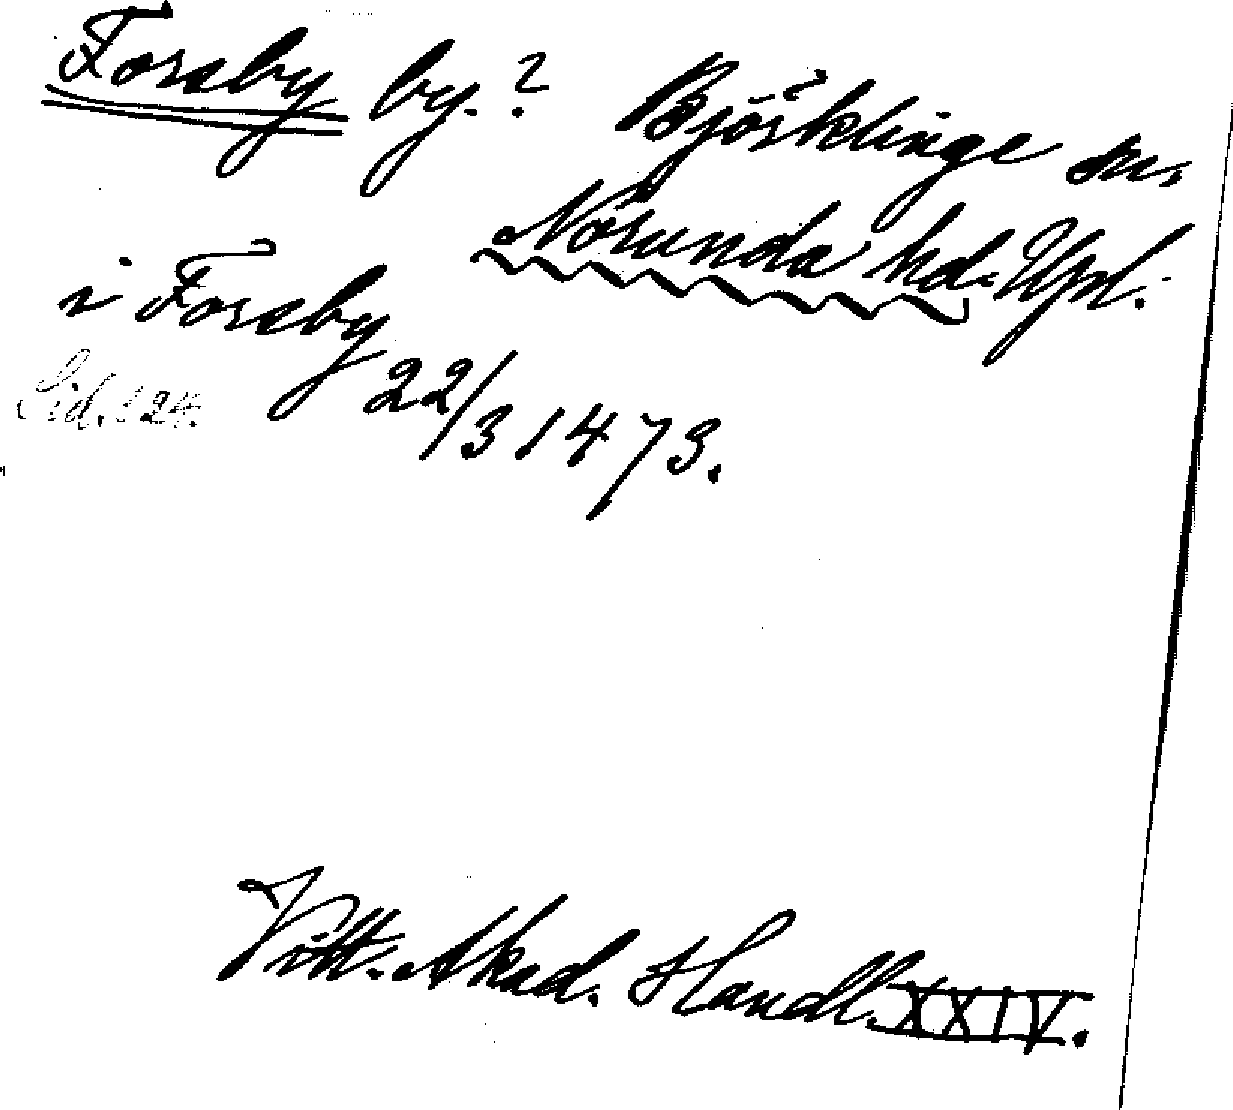 Forsby by.? Björklinge sn,
Norunda hd. Upl.
i Forsby 22/3 1473.
Sid. 124.
Vitt. Akad. Handl. XXIV.